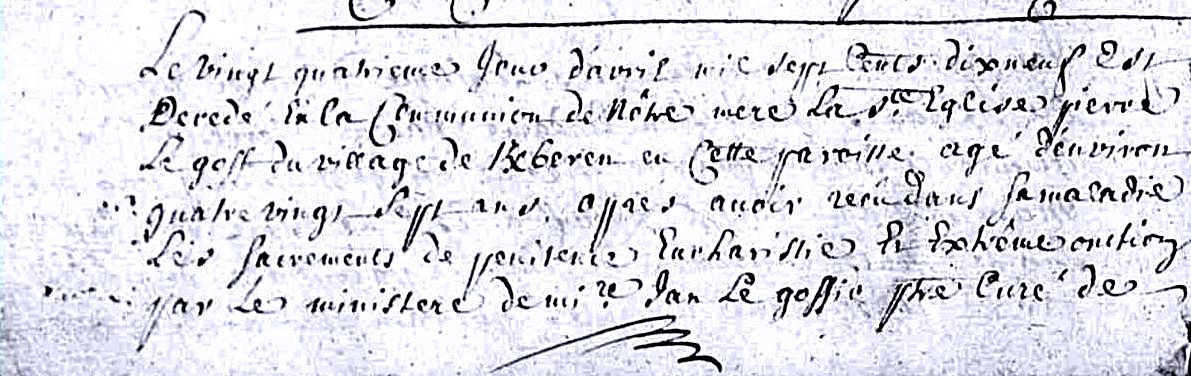 Le vingt quatrieme Jour d'avril mil sept Cents dixneuf Est
Decedé En la Communion de Nôtre mere La Ste Eglise pierre
Le goff du village de Kberen en Cette paroisse agé d'environ
quatre vingt sept ans, appres avoir recu dans sa maladie
Les sacrements de penitence Eucharistie Et Extrême onction
par Le ministere de mire Jan Le goffic ptre Curé de